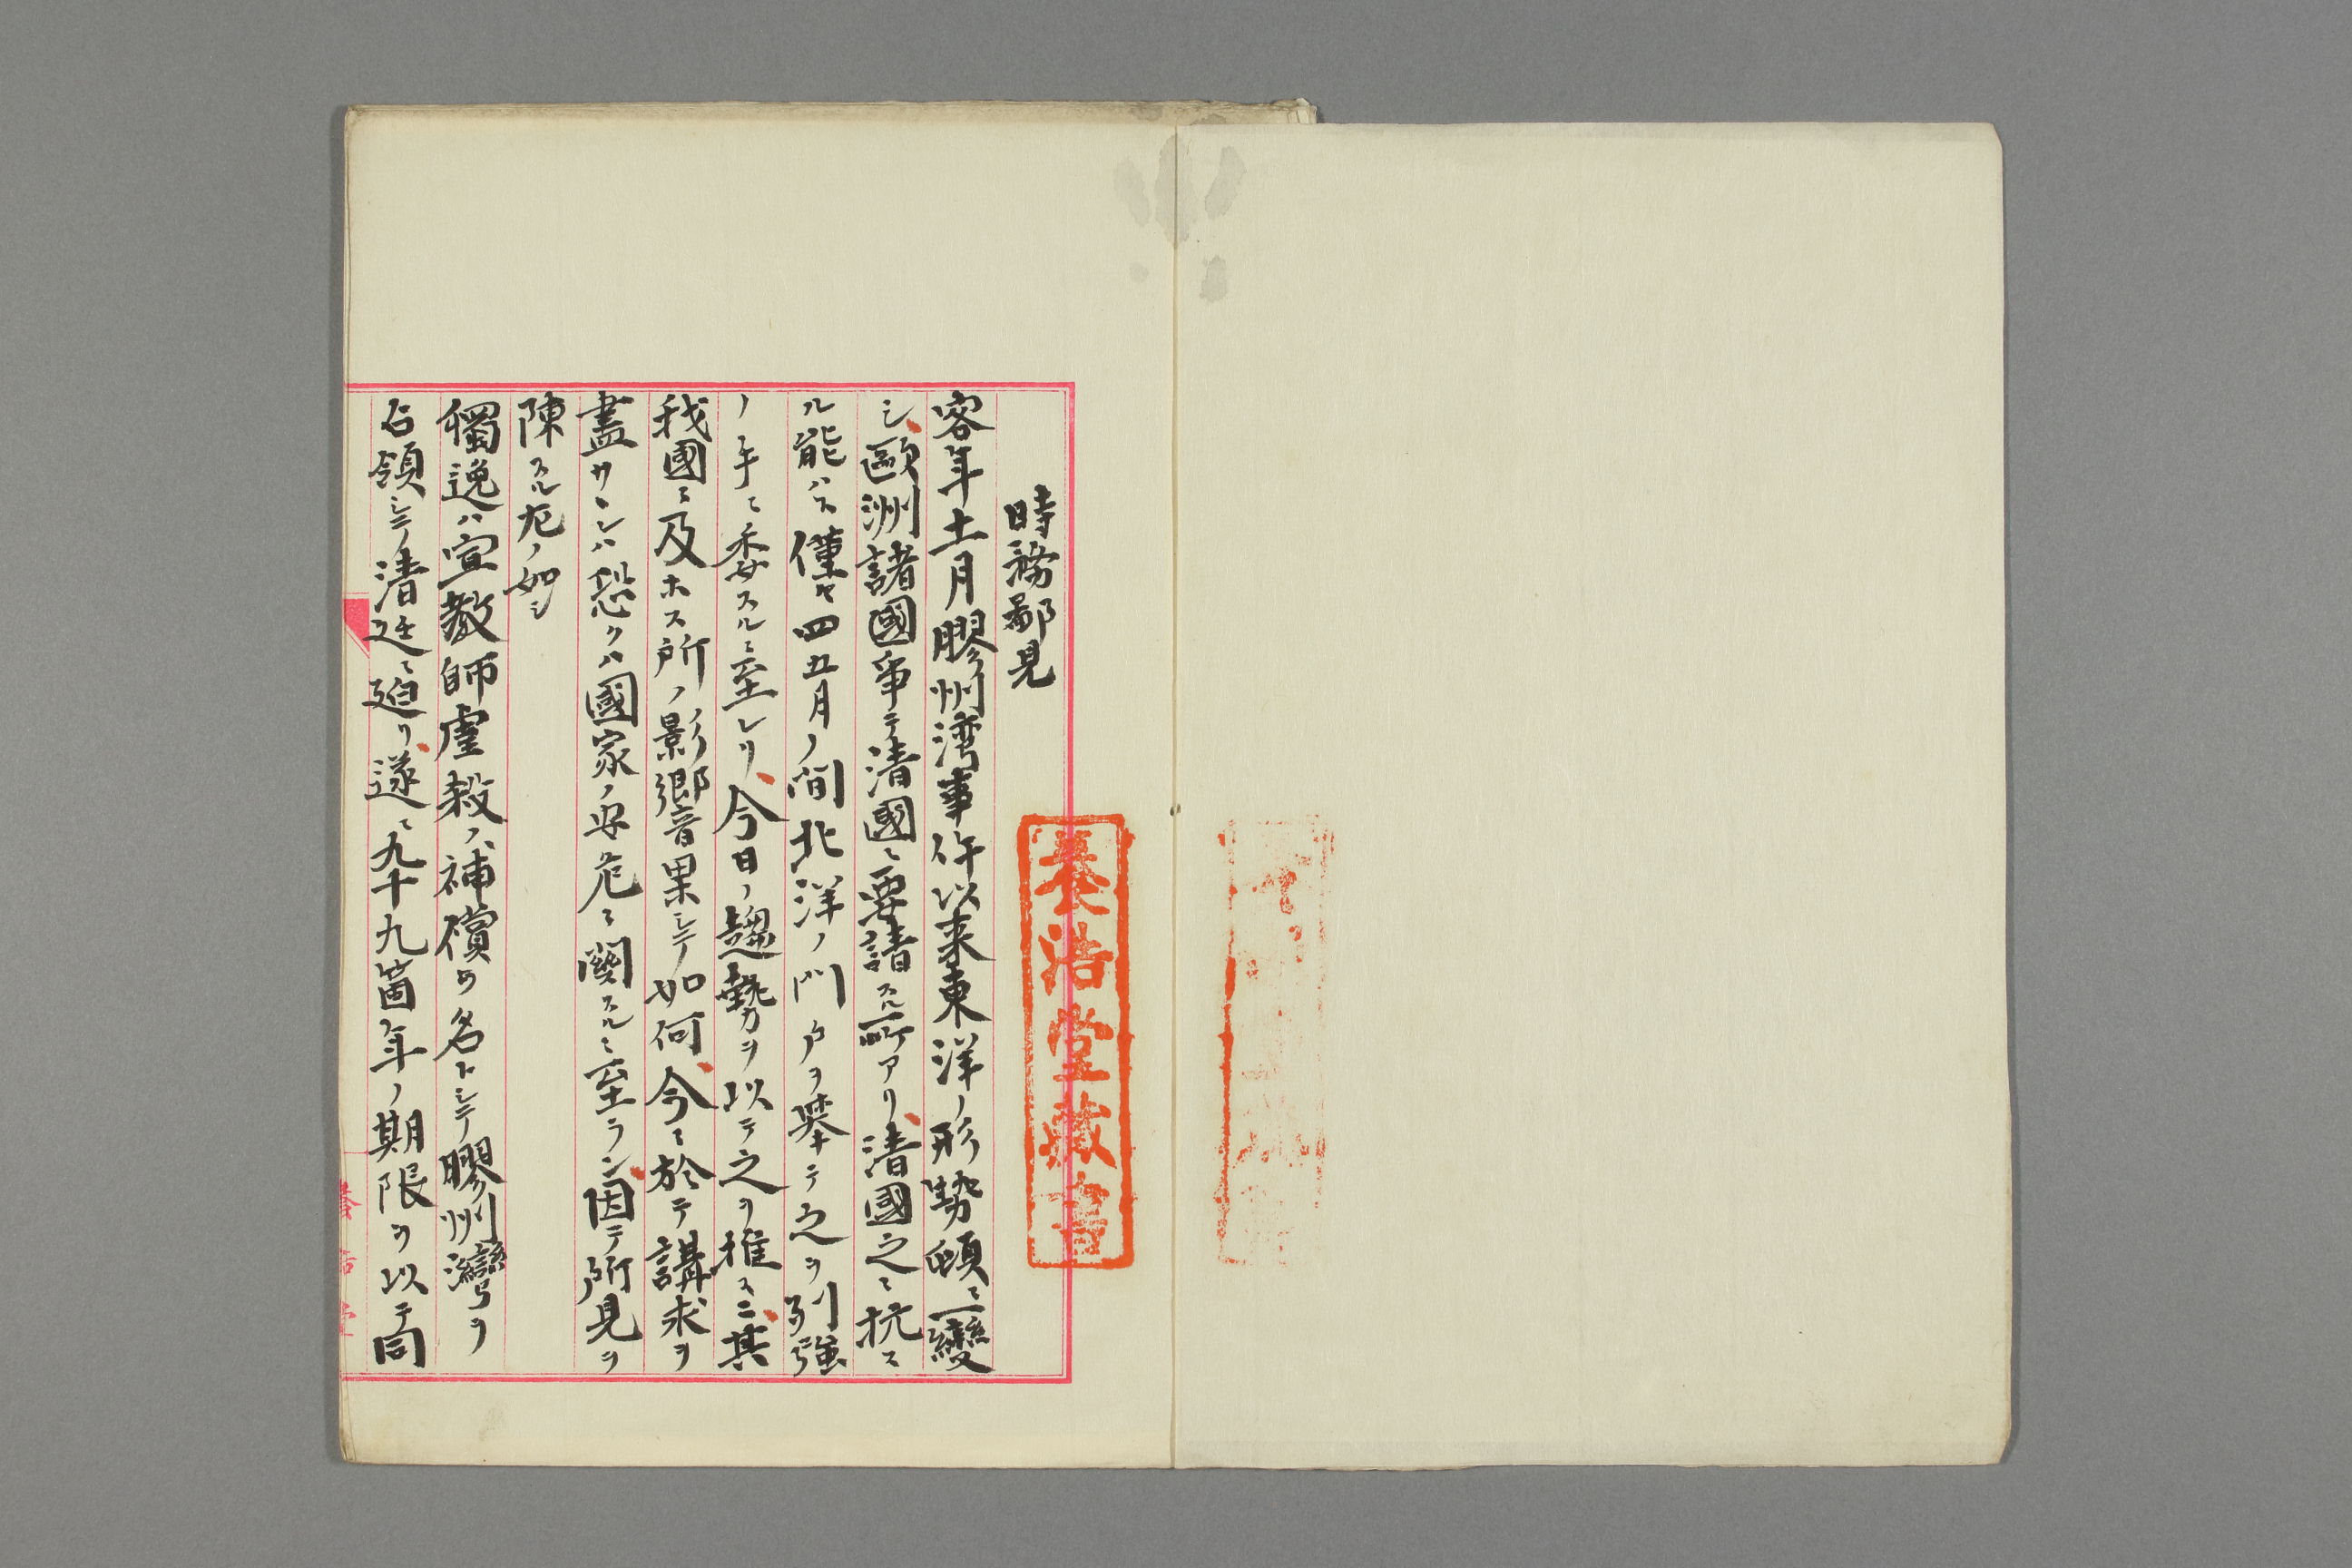 時務鄙見
養浩堂藏書
客年十一月膠州湾事件以来東洋ノ形勢頓ニ一變
シ、歐洲諸國爭テ清國ニ要請スル所アリ、清國之ニ抗ス
ル能ハス僅々四五月ノ間北洋ノ門戸ヲ挙テ之ヲ列強
ノ手ニ委スルニ至レリ、今日ノ趨勢ヲ以テ之ヲ推スニ、其
我國ニ及ホス所ノ影響果シテ如何、今ニ於テ講求ヲ
盡サヽレハ恐クハ國家ノ安危ニ關スルニ至ラン、因テ所見ヲ
陳スル左ノ如シ
獨逸ハ宣教師虐殺ノ補償ヲ名トシテ膠州灣ヲ
占領シテ清廷ニ迫リ、遂ニ九十九箇年ノ期限ヲ以テ同